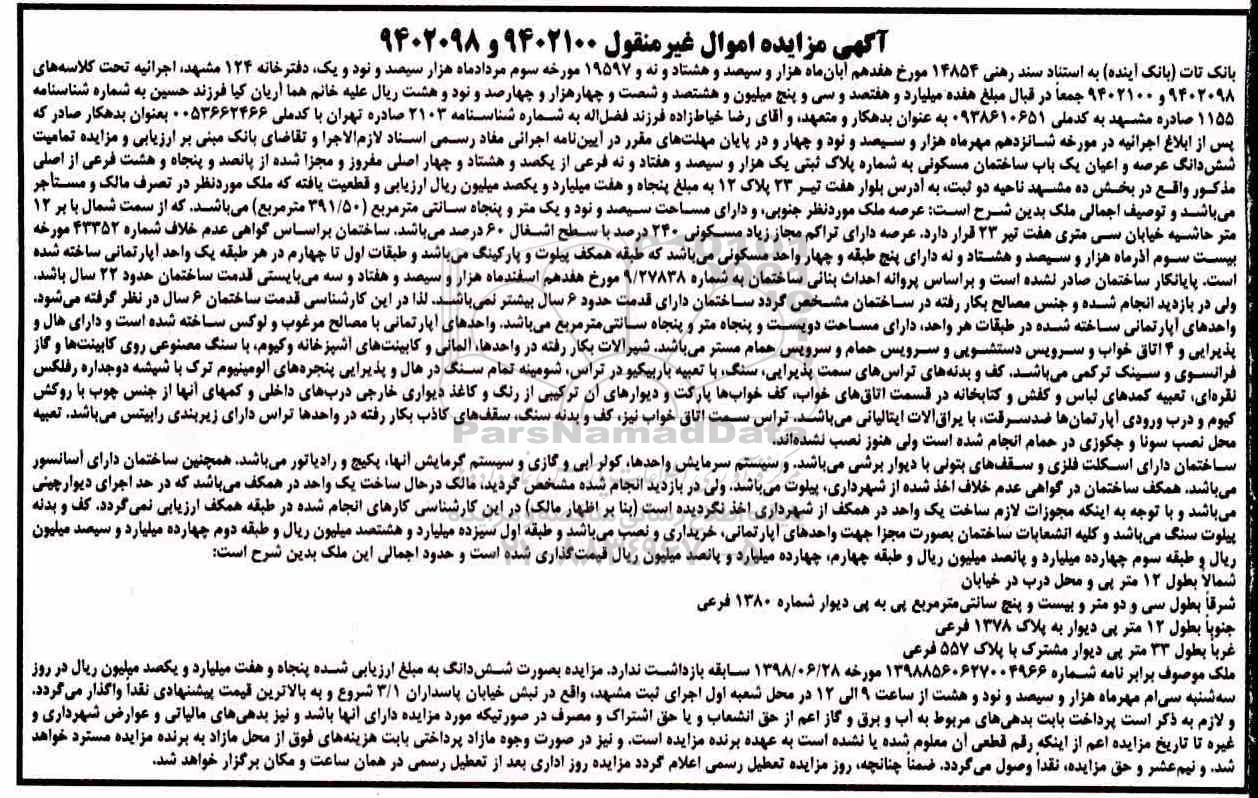 آگهی مزایده اموال غیرمنقول ۹۴۰۲۱۰۰ و ۹۴۰۲۰۹۸
بانک تات (بانک آینده) به استناد سند رهنی ۱۴۸۵۴ مورخ هفدهم آبان‌ماه هزار و سیصد و هشتاد و نه و ۱۹۵۹۷ مورخه سوم مردادماه هزار سیصد و نود و یک، دفترخانه ۱۲۴ مشهد، اجرائیه تحت کلاسه‌های
۹۴۰۲۰۹۸ و ۹۴۰۲۱۰۰ جمعاً در قبال مبلغ هفده میلیارد و هفتصد و سی و پنج میلیون و هشتصد و شصت و چهارهزار و چهارصد و نود و هشت ریال علیه خانم هما آریان کیا فرزند حسین به شماره شناسنامه
۱۱۵۵ صادره مشهد به کدملی ۰۹۳۸۶۱۰۶۵۱ به عنوان بدهکار و متعهد، و آقای رضا خیاط‌زاده فرزند فضل‌اله به شماره شناسنامه ۲۱۰۳ صادره تهران با کدملی ۰۰۵۳۶۶۲۴۶۶ بعنوان بدهکار صادر که
پس از ابلاغ اجرائیه در مورخه شانزدهم مهرماه هزار و سیصد و نود و چهار و در پایان مهلت‌های مقرر در آیین‌نامه اجرائی مفاد رسمی اسناد لازم‌الاجرا و تقاضای بانک مبنی بر ارزیابی و مزایده تمامیت
شش‌دانگ عرصه و اعیان یک باب ساختمان مسکونی به شماره پلاک ثبتی یک هزار و سیصد و هفتاد و نه فرعی از یکصد و هشتاد و چهار اصلی مفروز و مجزا شده از پانصد و پنجاه و هشت فرعی از اصلی
مذکور واقع در بخش ده مشهد ناحیه دو ثبت، به آدرس بلوار هفت تیر ۲۳ پلاک ۱۲ به مبلغ پنجاه و هفت میلیارد و یکصد میلیون ریال ارزیابی و قطعیت یافته که ملک موردنظر در تصرف مالک و مستأجر
می‌باشد و توصیف اجمالی ملک بدین شرح است: عرصه ملک موردنظر جنوبی، و دارای مساحت سیصد و نود و یک متر و پنجاه سانتی مترمربع (۳۹۱/۵۰ مترمربع) می‌باشد. که از سمت شمال با بر ۱۲
متر حاشیه خیابان سی متری هفت تیر ۲۳ قرار دارد. عرصه دارای تراکم مجاز زیاد مسکونی ۲۴۰ درصد با سطح اشغال ۶۰ درصد می‌باشد. ساختمان براساس گواهی عدم خلاف شماره ۴۳۳۵۲ مورخه
بیست سوم آذرماه هزار و سیصد و هشتاد و نه دارای پنج طبقه و چهار واحد مسکونی می‌باشد که طبقه همکف پیلوت و پارکینگ می‌باشد و طبقات اول تا چهارم در هر طبقه یک واحد آپارتمانی ساخته شده
است. پایانکار ساختمان صادر نشده است و براساس پروانه احداث بنائی ساختمان به شماره ۹/۲۷۸۳۸ مورخ هفدهم اسفندماه هزار و سیصد و هفتاد و سه می‌بایستی قدمت ساختمان حدود ۲۲ سال باشد.
ولی در بازدید انجام شده و جنس مصالح بکار رفته در ساختمان مشخص گردد ساختمان دارای قدمت حدود ۶ سال بیشتر نمی‌باشد. لذا در این کارشناسی قدمت ساختمان ۶ سال در نظر گرفته می‌شود.
واحدهای آپارتمانی ساخته شده در طبقات هر واحد، دارای مساحت دویست و پنجاه متر و پنجاه سانتی‌مترمربع می‌باشد. واحدهای آپارتمانی با مصالح مرغوب و لوکس ساخته شده است و دارای هال و
پذیرایی و ۴ اتاق خواب و سرویس دستشویی و سرویس حمام و سرویس حمام مستر می‌باشد. شیرآلات بکار رفته در واحدها، آلمانی و کابینت‌های آشپزخانه وکیوم، با سنگ مصنوعی روی کابینت‌ها و گاز
فرانسوی و سینک ترکمی می‌باشد. کف و بدنه‌های تراس‌های سمت پذیرایی، سنگ، با تعبیه باربیکیو در تراس، شومینه تمام سنگ در هال و پذیرایی پنجره‌های آلومینیوم ترک با شیشه دوجداره رفلکس
نقره‌ای، تعبیه کمدهای لباس و کفش و کتابخانه در قسمت اتاق‌های خواب، کف خواب‌ها پارکت و دیوارهای آن ترکیبی از رنگ و کاغذ دیواری خارجی درب‌های داخلی و کمهای آنها از جنس چوب با روکش
کیوم و درب ورودی آپارتمان‌ها ضدسرقت، با یراق‌آلات ایتالیانی می‌باشد. تراس سمت اتاق خواب نیز، کف و بدنه سنگ، سقف‌های کاذب بکار رفته در واحدها تراس دارای زیربندی رابیتس می‌باشد. تعبیه
محل نصب سونا و جکوزی در حمام انجام شده است ولی هنوز نصب نشده‌اند.
ساختمان دارای اسکلت فلزی و سقف‌های بتونی با دیوار برشی می‌باشد. و سیستم سرمایش واحدها، کولر آبی و گازی و سیستم گرمایش آنها، پکیج و رادیاتور می‌باشد. همچنین ساختمان دارای آسانسور
می‌باشد. همکف ساختمان در گواهی عدم خلاف اخذ شده از شهرداری، پیلوت می‌باشد. ولی در بازدید انجام شده مشخص گردید، مالک درحال ساخت یک واحد در همکف می‌باشد که در حد اجرای دیوارچینی
می‌باشد و با توجه به اینکه مجوزات لازم ساخت یک واحد در همکف از شهرداری اخذ نگردیده است (بنا بر اظهار مالک) در این کارشناسی کارهای انجام شده در طبقه همکف ارزیابی نمی‌گردد. کف و بدنه
پیلوت سنگ می‌باشد و کلیه انشعابات ساختمان بصورت مجزا جهت واحدهای آپارتمانی، خریداری و نصب می‌باشد و طبقه اول سیزده میلیارد و هشتصد میلیون ریال و طبقه دوم چهارده میلیارد و سیصد میلیون
ریال و طبقه سوم چهارده میلیارد و پانصد میلیون ریال و طبقه چهارم، چهارده میلیارد و پانصد میلیون ریال قیمت‌گذاری شده است و حدود اجمالی این ملک بدین شرح است:
شمالاً بطول ۱۲ متر پی و محل درب در خیابان
شرقاً بطول سی و دو متر و بیست و پنج سانتی‌مترمربع پی به پی دیوار شماره ۱۳۸۰ فرعی
جنوباً بطول ۱۲ متر پی دیوار به پلاک ۱۳۷۸ فرعی
غرباً بطول ۳۳ متر پی دیوار مشترک با پلاک ۵۵۷ فرعی
ملک موصوف برابر نامه شماره ۱۳۹۸۸۵۶۰۶۲۷۰۰۴۹۶۶ مورخه ۱۳۹۸/۰۶/۲۸ سابقه بازداشت ندارد. مزایده بصورت شش‌دانگ به مبلغ ارزیابی شده پنجاه و هفت میلیارد و یکصد میلیون ریال در روز
سه‌شنبه سی‌ام مهرماه هزار و سیصد و نود و هشت از ساعت ۹ الی ۱۲ در محل شعبه اول اجرای ثبت مشهد، واقع در نبش خیابان پاسداران ۳/۱ شروع و به بالاترین قیمت پیشنهادی نقداً واگذار می‌گردد.
و لازم به ذکر است پرداخت بابت بدهی‌های مربوط به آب و برق و گاز اعم از حق انشعاب و یا حق اشتراک و مصرف در صورتیکه مورد مزایده دارای آنها باشد و نیز بدهی‌های مالیاتی و عوارض شهرداری و
غیره تا تاریخ مزایده اعم از اینکه رقم قطعی آن معلوم شده یا نشده است به عهده برنده مزایده است. و نیز در صورت وجوه مازاد پرداختی بابت هزینه‌های فوق از محل مازاد به برنده مزایده مسترد خواهد
شد. و نیم‌عشر و حق مزایده، نقداً وصول می‌گردد. ضمناً چنانچه، روز مزایده تعطیل رسمی اعلام گردد مزایده روز اداری بعد از تعطیل رسمی در همان ساعت و مکان برگزار خواهد شد.
ParsNamadData